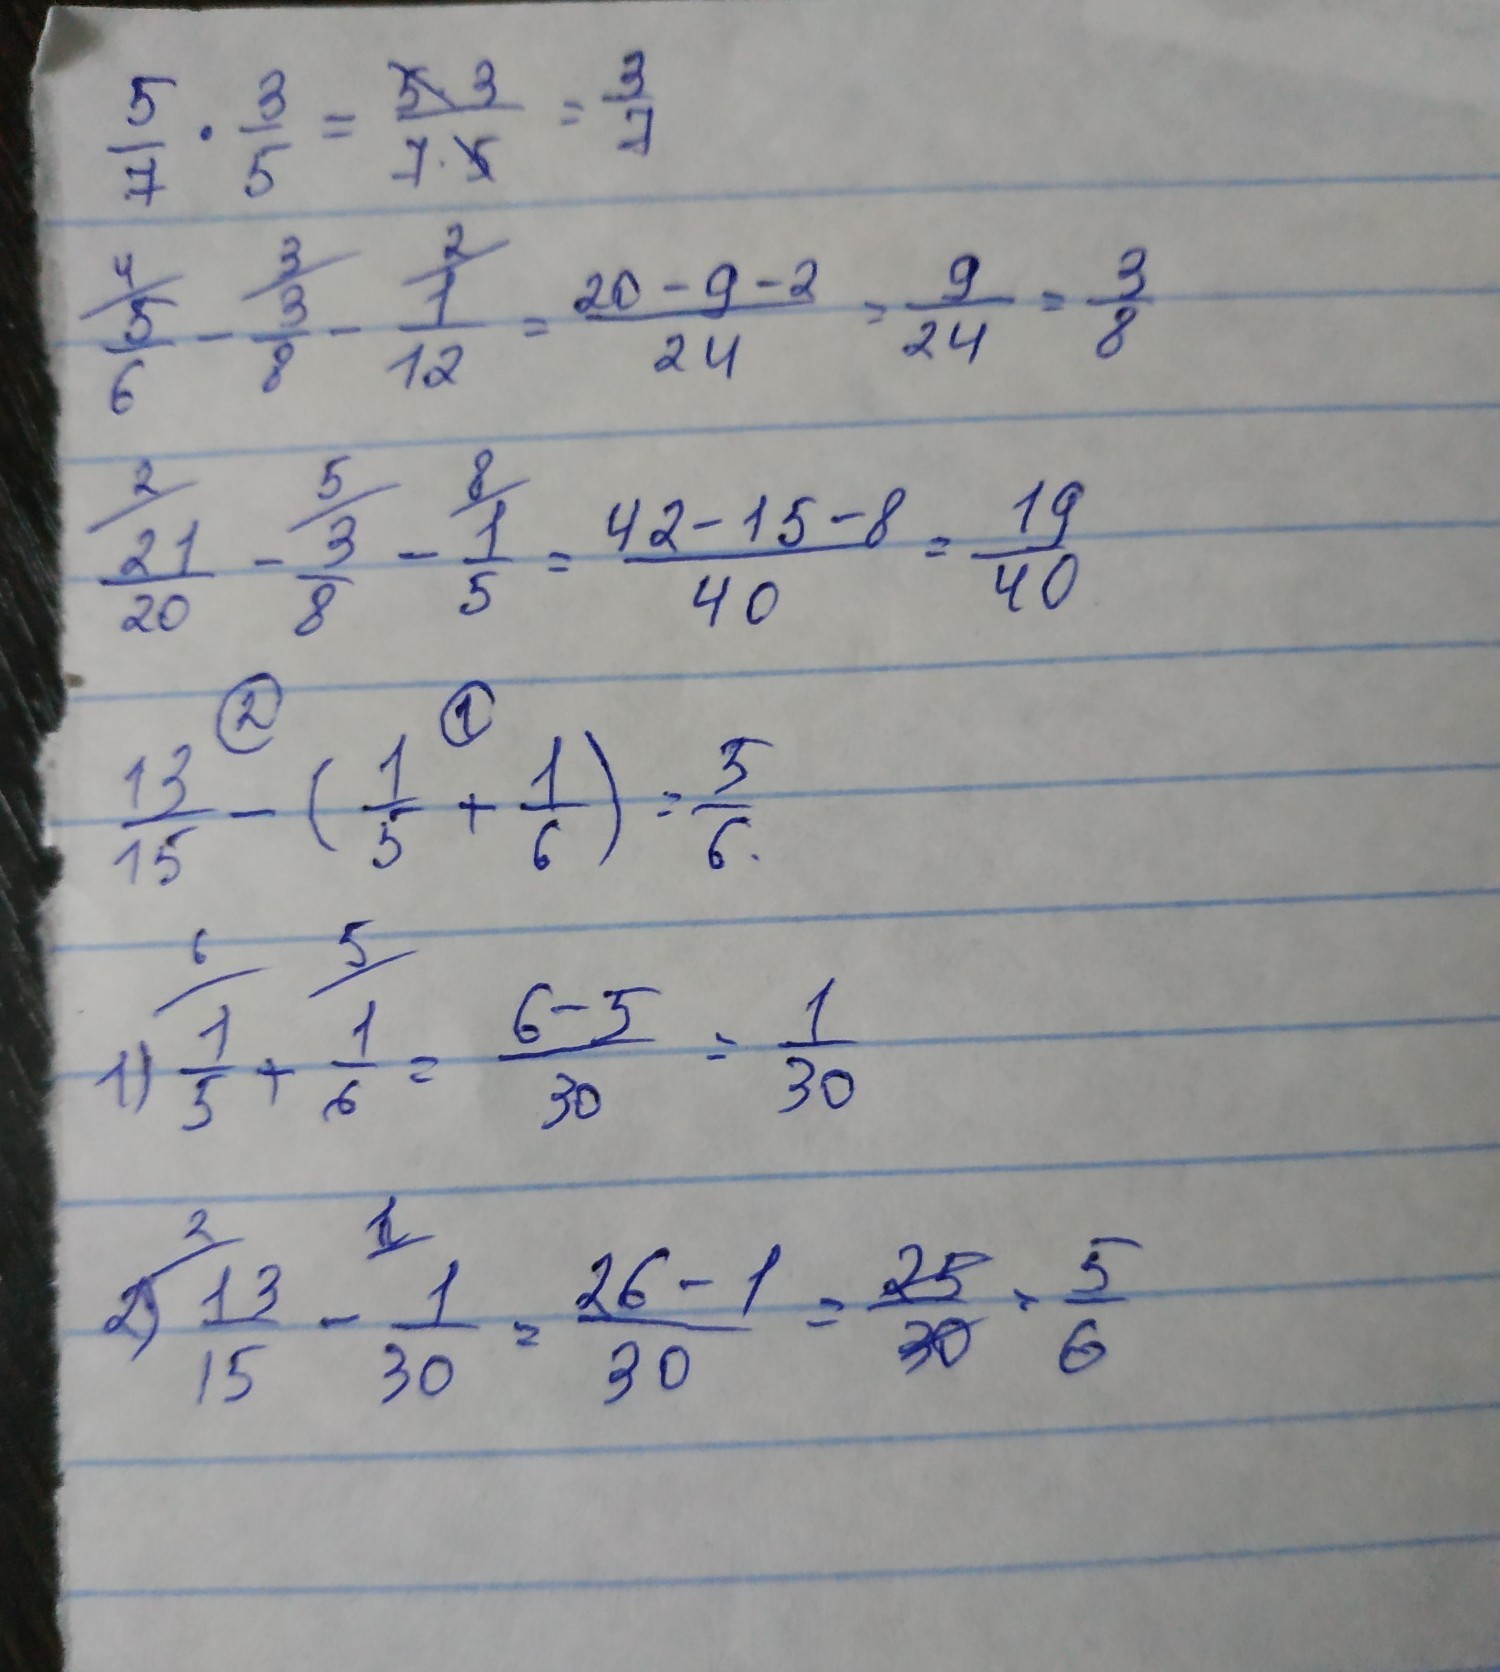 5/7 · 3/5 = 5·3/7·5 = 3/7
4/ 3/ 2/
5/6 - 3/8 - 1/12 = 20-9-2/24 = 9/24 = 3/8
2/ 5/ 8/
21/20 - 3/8 - 1/5 = 42-15-8/40 = 19/40
② ①
13/15 - (1/5 + 1/6) = 5/6.
6/ 5/
1) 1/5 + 1/6 = 6-5/30 = 1/30
2/ 1/
2) 13/15 - 1/30 = 26-1/30 = 25/30 = 5/6